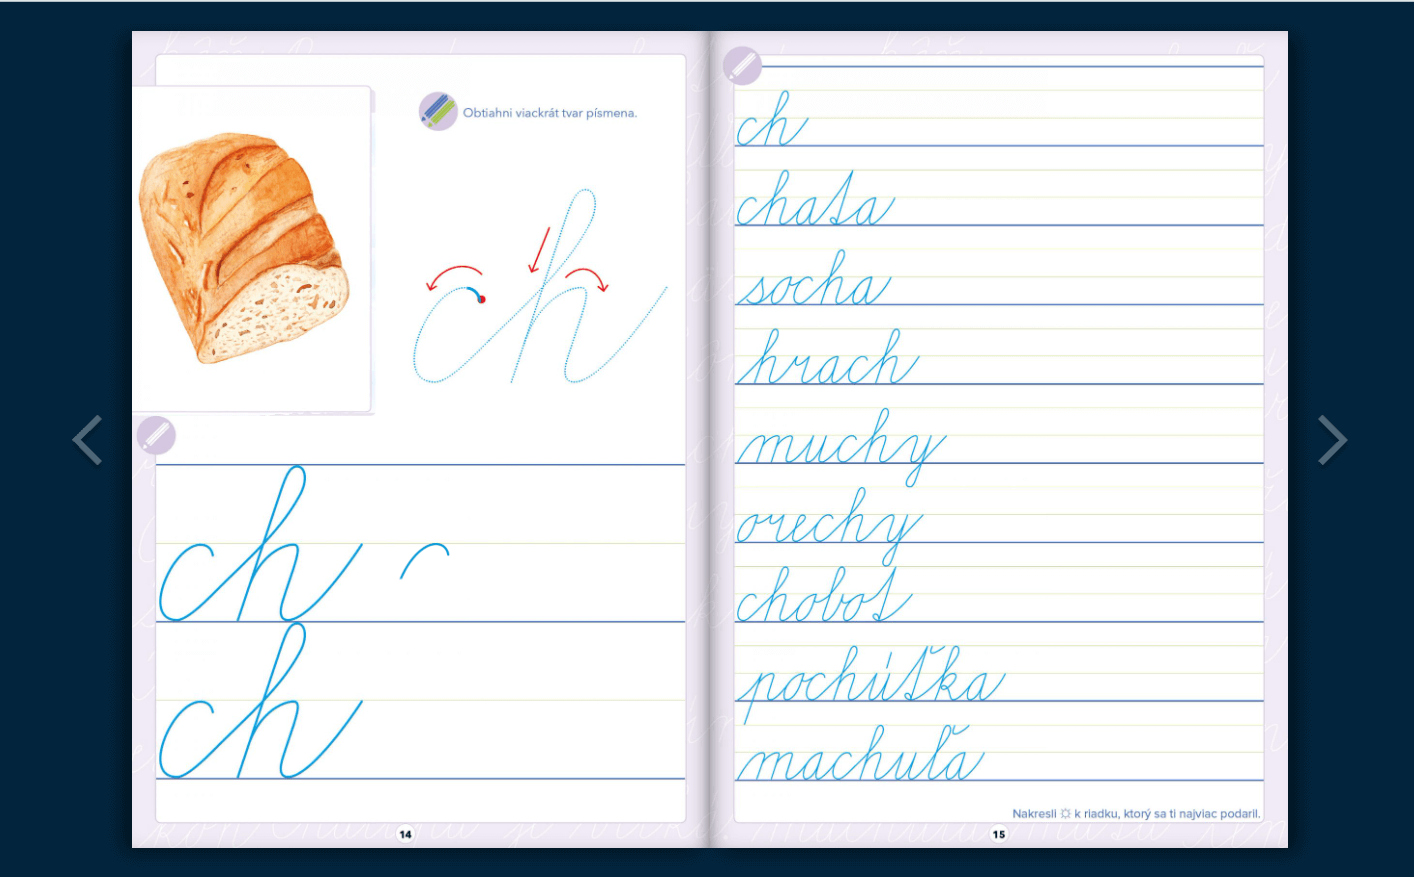 Obtiahni viackrát tvar písmena.
ch
ch
ch
14
ch
chata
socha
hrach
muchy
orechy
chobot
pochúťka
machuľa
Nakresli k riadku, ktorý sa ti najviac podaril.
15